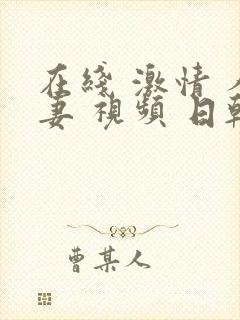 在綫 激情
妻 視頻 日韓
曹某人